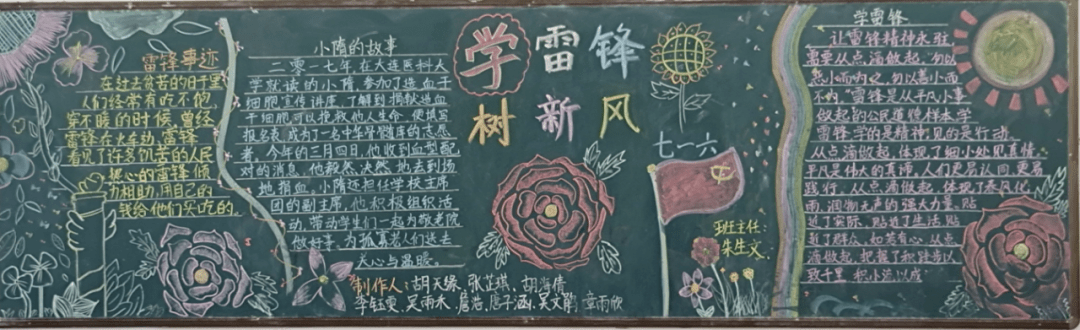 雷锋事迹
在过去贫苦的日子里
人们经常有吃不饱,
穿不暖的时候,曾经
雷锋在火车站,雷锋
看见了许多饥苦的人民
热心的雷锋倾
力相助,用自己的
钱给他们买吃的。
小隋的故事
二零一七年在大连医科大
学就读的小隋,参加了造血干
细胞宣传讲座,了解到捐献造血
干细胞可以挽救他人生命,便填写
报名表,成为了一名中华骨髓库的志愿
者,今年的三月四日,他收到血型配
对的消息,他毅然决然地去到场
地捐血,小隋还担任学校主席
团的副主席,他积极组织活
动,带动学生们一起为敬老院
做好事,为孤寡老人们送去
关心与温暖。
学雷锋
树新风
制作人:胡天缘、张芷琪、胡海倩
李钰雯、吴雨永、詹浩、唐子涵、吴文鹃、章雨欣
七一六
班主任:
朱生文
学雷锋
让雷锋精神永驻
需要从点滴做起,勿以
恶小而为之,勿以善小而
不为,"雷锋是从平凡小事
做起的公民道德样本,学
雷锋,学的是精神,见的是行动。
从点滴做起,体现了细小处见真情。
平凡是伟大的真谛,人们更易认同,更易
践行。从点滴做起,体现了春风化
雨,润物无声的强大力量,贴
近了实际,贴近了生活,贴
近了群众,如若有心,从点
滴做起,把握了积跬步以
致千里,积小流以成